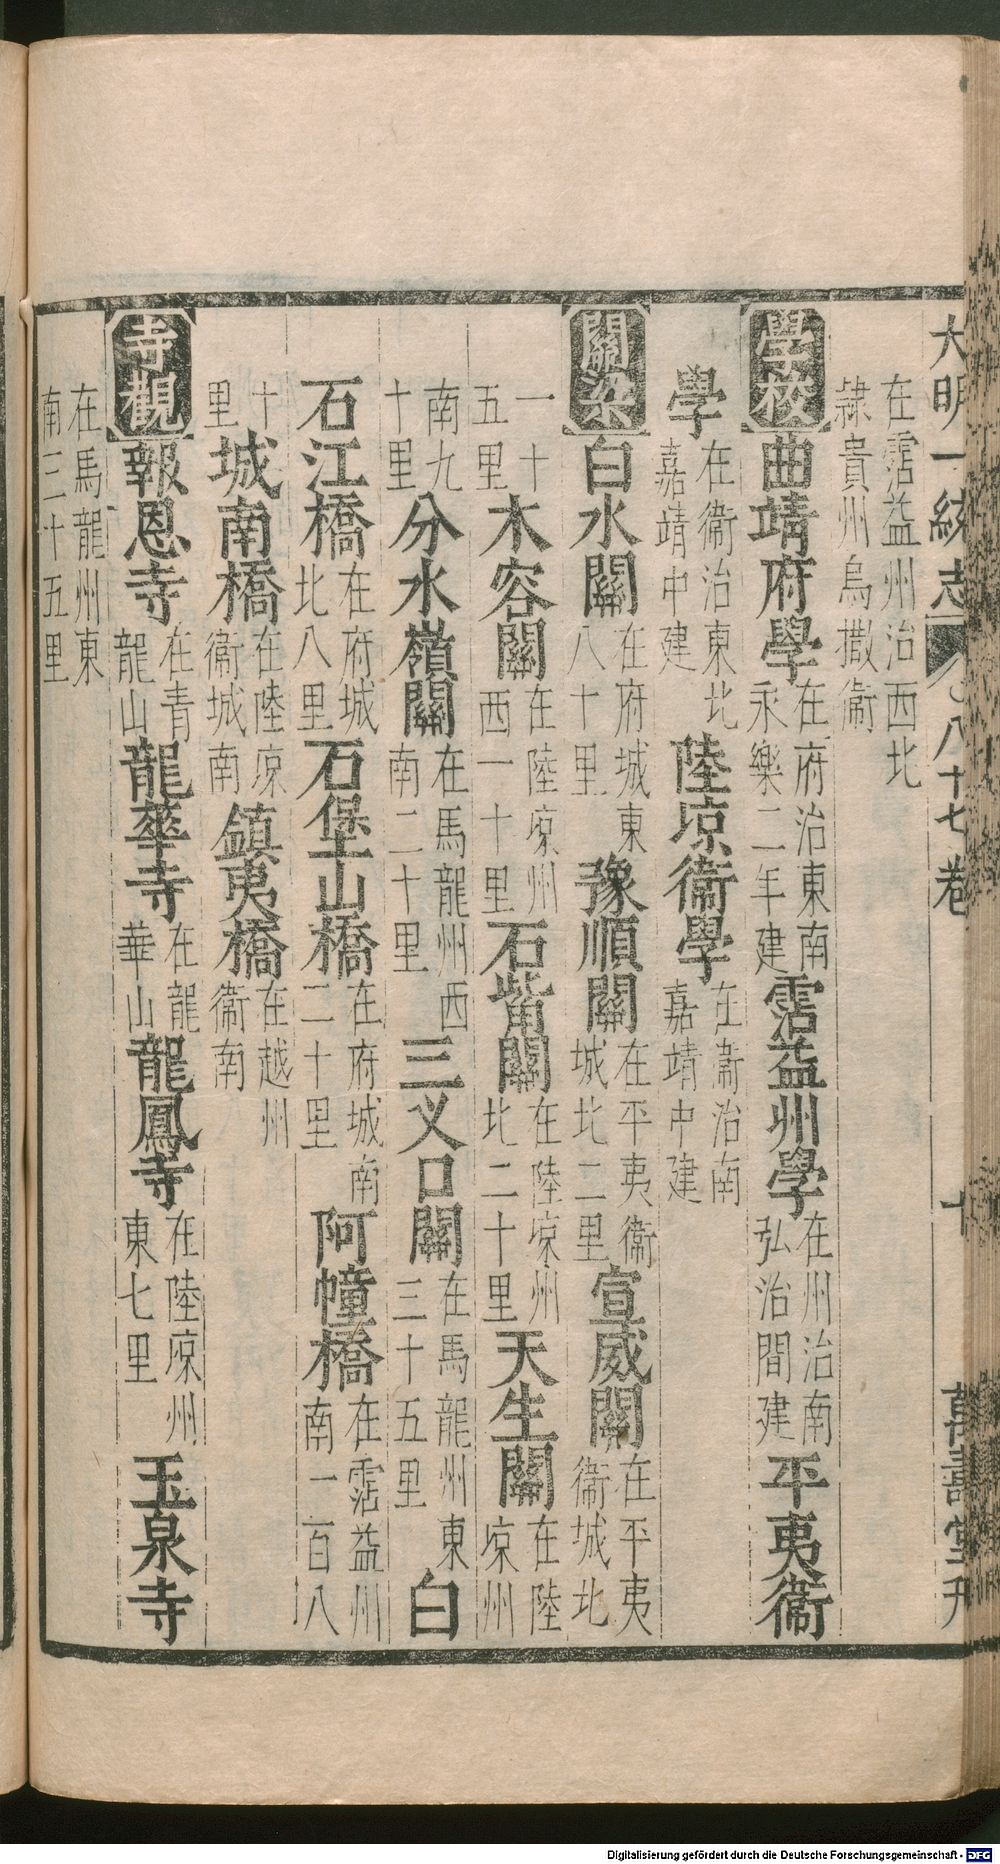 大明一統志 八十七卷 十 萬壽堂刋
在霑益州治西北隸貴州烏撒衞
學校 曲靖府學 在府治東南永樂二年建 霑益州學 在州治南弘治間建 平夷衞
學 在衞治東北嘉靖中建 陸凉衞學 在衞治南嘉靖中建
關梁 白水關 在府城東八十里 豫順關 在平夷衞城北二里 宣威關 在平夷衞城北
一十五里 木容關 在陸凉州西一十里 石觜關 在陸凉州北二十里 天生關 在陸凉州
南九十里 分水嶺關 在馬龍州西南二十里 三乂口關 在馬龍州東三十五里 白
石江橋 在府城北八里 石堡山橋 在府城南二十里 阿幢橋 在霑益州南一百八
十里 城南橋 在陸凉衞城南 鎮夷橋 在越州衞南
寺觀 報恩寺 在青龍山 龍華寺 在龍華山 龍鳳寺 在陸凉州東七里 玉泉寺
在馬龍州東南三十五里
Digitalisierung gefördert durch die Deutsche Forschungsgemeinschaft - DFG